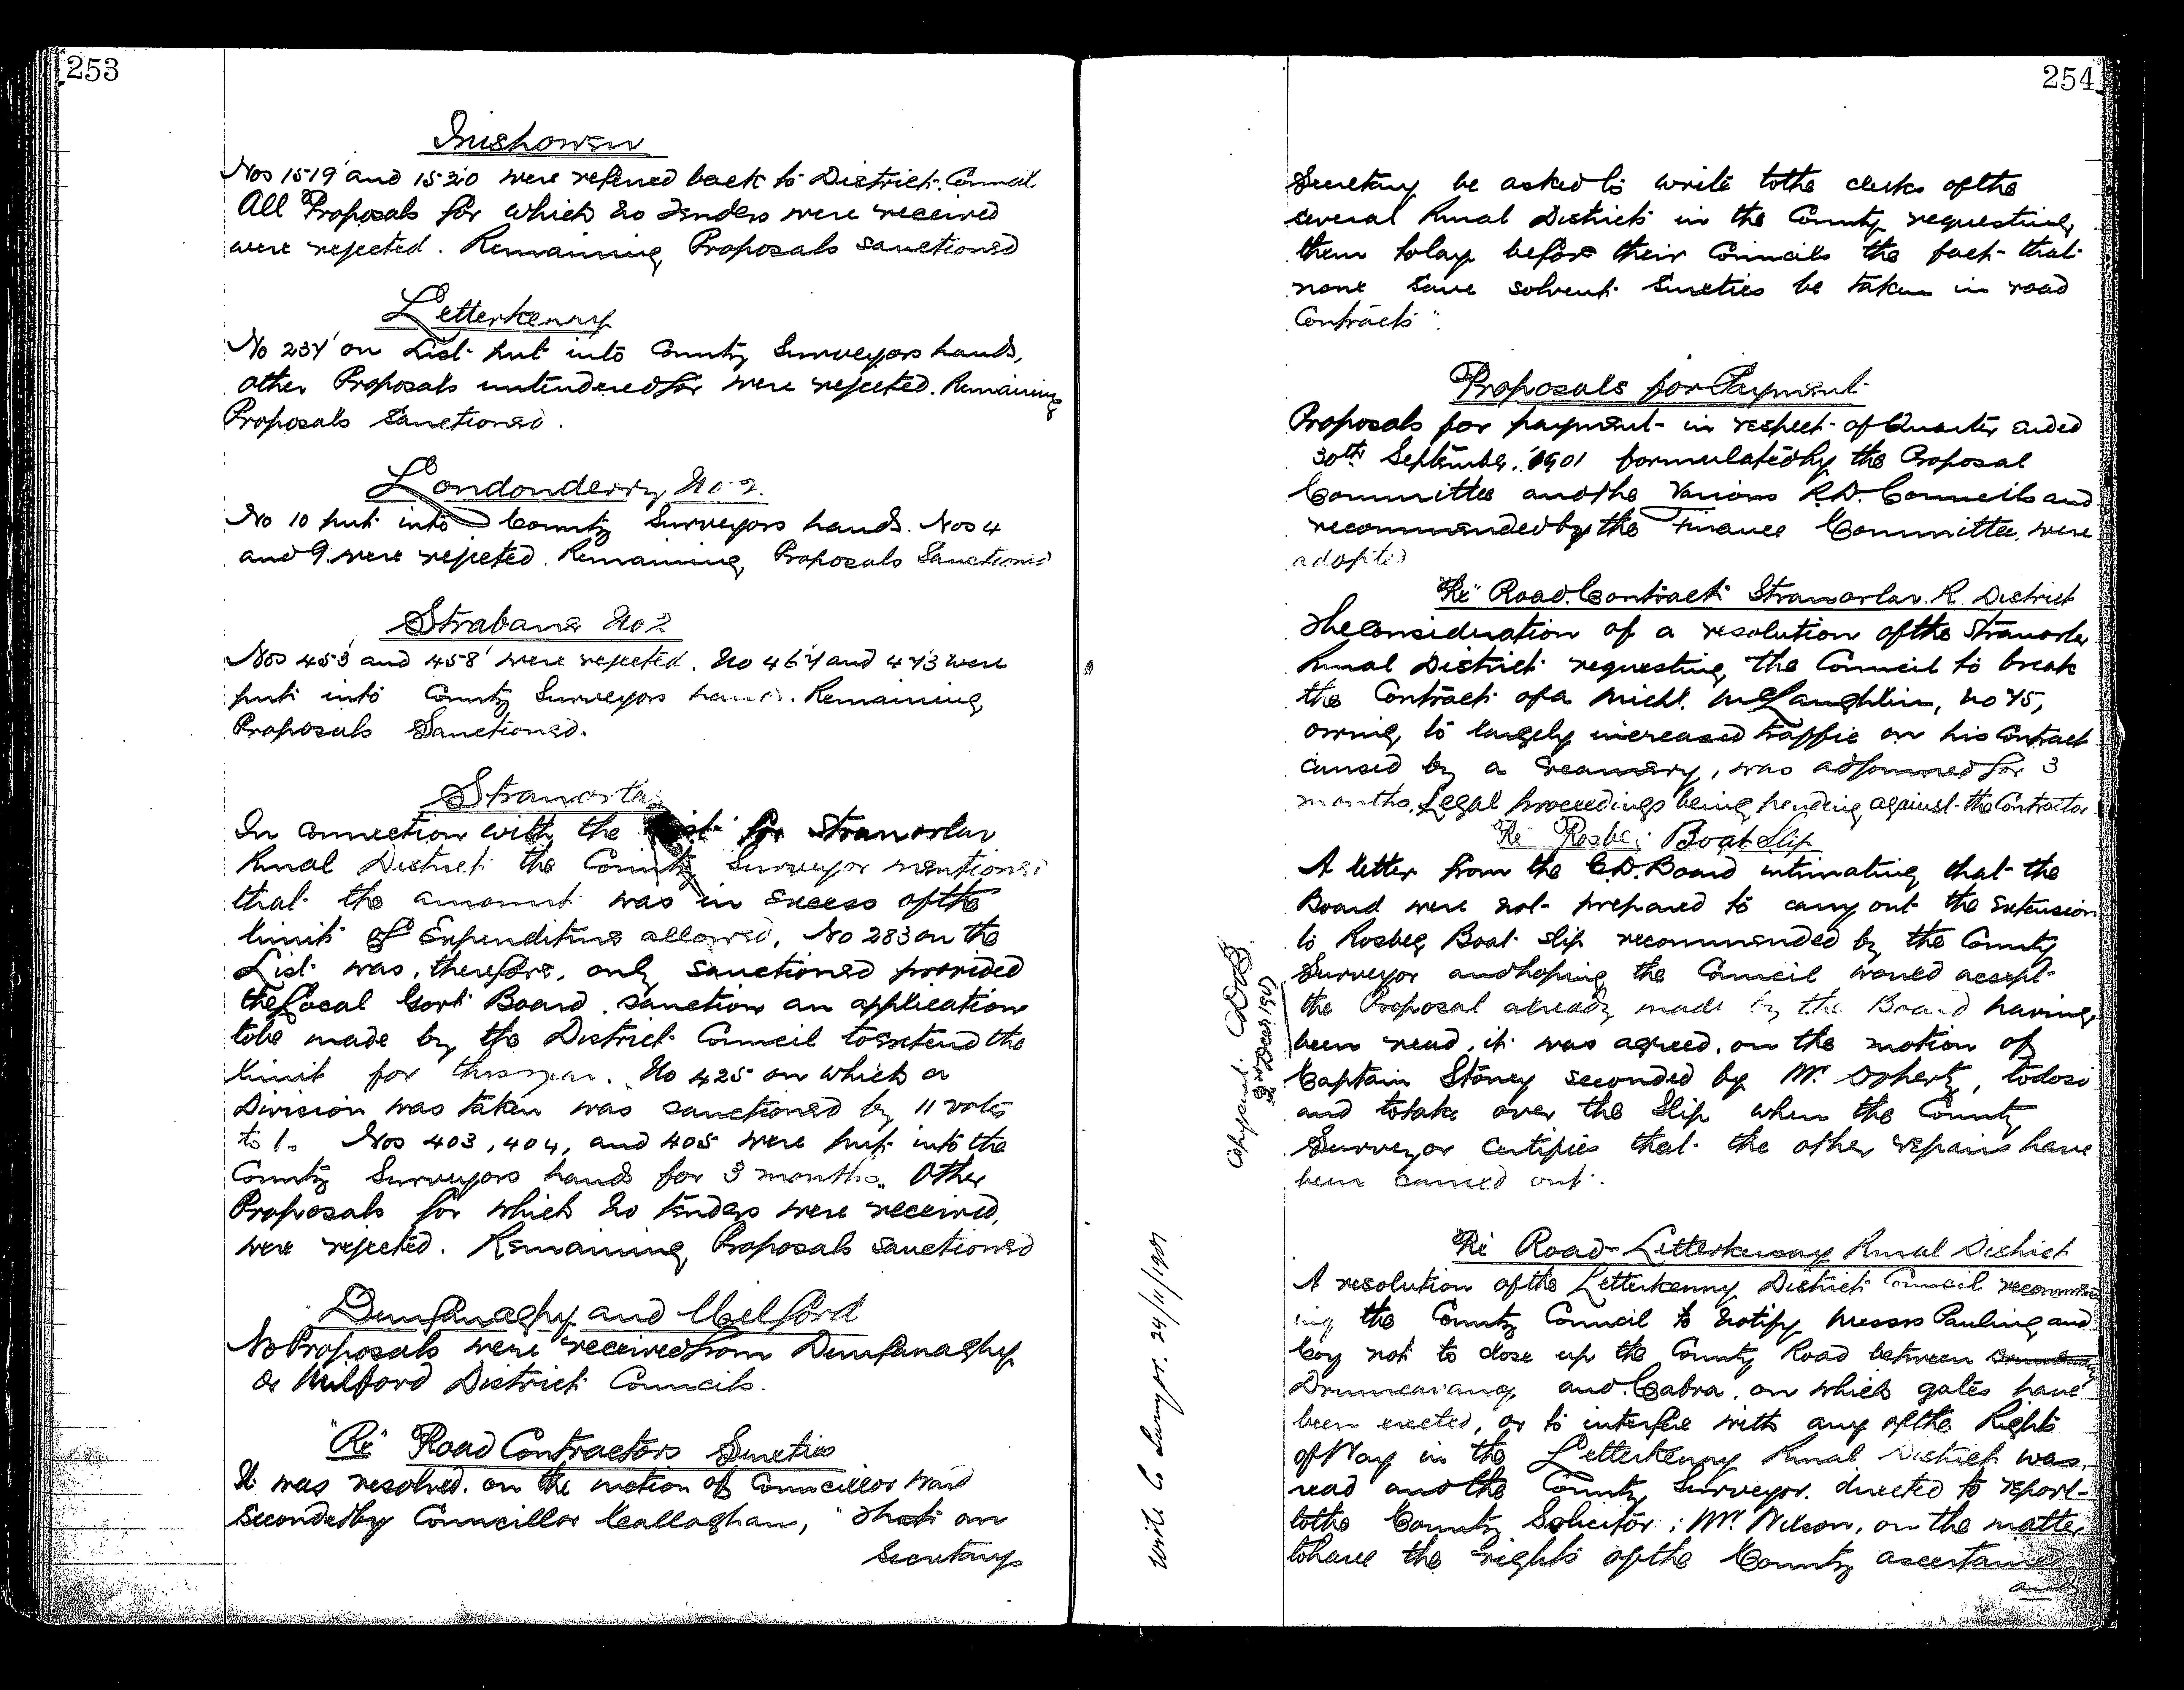 253
Inishowen
Nos 1519 and 1520 were referred back to District Council
All Proposals for which no Tenders were received
were rejected. Remaining Proposals sanctioned
Letterkenny
No 237 on List put into County Surveyors hands,
other Proposals untendered for were rejected. Remaining
Proposals Sanctioned.
Londonderry No 2.
No 10 put into County Surveyors hands. Nos 4
and 9 were rejected. Remaining Proposals Sanctioned
Strabane No 2
Nos 453 and 458 were rejected. No 467 and 473 were
put into County Surveyors hands. Remaining
Proposals Sanctioned.
Stranorlar
In connection with the List for Stranorlar
Rural District the County Surveyor mentioned
that the amount was in excess of the
limit of Expenditure allowed. No 283 on the
List was, therefore, only sanctioned provided
the Local Govt Board sanction an application
to be made by the District Council to extend the
limit for this year. No 425 on which a
Division was taken was sanctioned by 11 votes
to 1. Nos 403, 404, and 405 were put into the
County Surveyors hands for 3 months. Other
Proposals for which no tenders were received,
were rejected. Remaining Proposals sanctioned
Dunfanaghy and Milford
No Proposals were received from Dunfanaghy
or Milford District Councils.
"Re" Road Contractors Sureties
It was resolved on the motion of Councillor Ward
seconded by Councillor Callaghan, "That our
Secretary
254
Secretary be asked to write to the clerks of the
several Rural Districts in the County requesting
them to lay before their Councils the fact that
none save solvent sureties be taken in road
Contracts".
Proposals for Payment
Proposals for payment in respect of Quarter ended
30th September, 1901 formulated by the Proposal
Committee and the various R.D. Councils and
recommended by the Finance Committee, were
adopted
"Re" Road Contract Stranorlar R. District
The consideration of a resolution of the Stranorlar
Rural District requesting the Council to break
the Contract of a Michl. McLaughlin, No 75,
owing to largely increased traffic on his Contract
caused by a creamery, was adjourned for 3
months, Legal proceedings being pending against the Contractor
"Re" Rosbeg Boat Slip
A letter from the C.D. Board intimating that the
Board were not prepared to carry out the extension
to Rosbeg Boat slip recommended by the County
Surveyor and hoping the Council would accept
the Proposal already made by the Board having
been read, it was agreed, on the motion of
Captain Stoney seconded by Mr Doherty, to do so
and to take over the Slip when the County
Surveyor certifies that the other repairs have
been carried out.
Copy sent CDB
2nd Decr 1901
"Re" Road-Letterkenny Rural District
A resolution of the Letterkenny District Council recommend
ing the County Council to notify Messrs Pauling and
Coy not to close up the County Road between
and Cabra, on which gates have
been erected, or to interfere with any of the Rights
of Way in the Letterkenny Rural District was
read and the County Surveyor directed to report
to the County Solicitor, Mr Wilson, on the matter
to have the rights of the County ascertained
and
Write Co Survyor. 24/11/1901